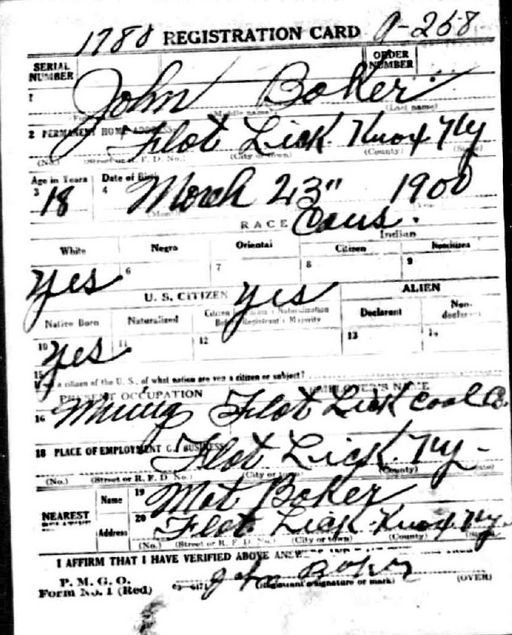 1780 REGISTRATION CARD A-258
SERIAL NUMBER ORDER NUMBER
1 John Baker
(Middle name) (Last name)
2 PERMANENT HOME ADDRESS
Flat Lick Knox Ky
(No.) (Street or R. F. D. No.) (City or town) (County) (State)
Age in Years Date of Birth
3 18 4 March 23" 1900
RACE Caus.
White Negro Oriental Indian
Citizen Noncitizen
yes 6 7 8 9
U. S. CITIZEN yes ALIEN
Native Born Naturalized Citizen Naturalization Before Registrant's Majority Declarant Non-declarant
10 yes 11 12 13 14
15 If not a citizen of the U. S., of what nation are you a citizen or subject?
PRESENT OCCUPATION EMPLOYER'S NAME
16 Mining Flat Lick Coal Co.
18 PLACE OF EMPLOYMENT OR BUSINESS
Flat Lick. Ky-
(No.) (Street or R. F. D. No.) (City or town) (County) (State)
NEAREST Name 19 Mat Baker
Address 20 Flat Lick-Knox-Ky.
(No.) (Street or R. F. D. No.) (City or town) (County) (State)
I AFFIRM THAT I HAVE VERIFIED ABOVE
P. M. G. O.
Form No. 1 (Red) John Baker
(Registrant's signature or mark) (OVER)